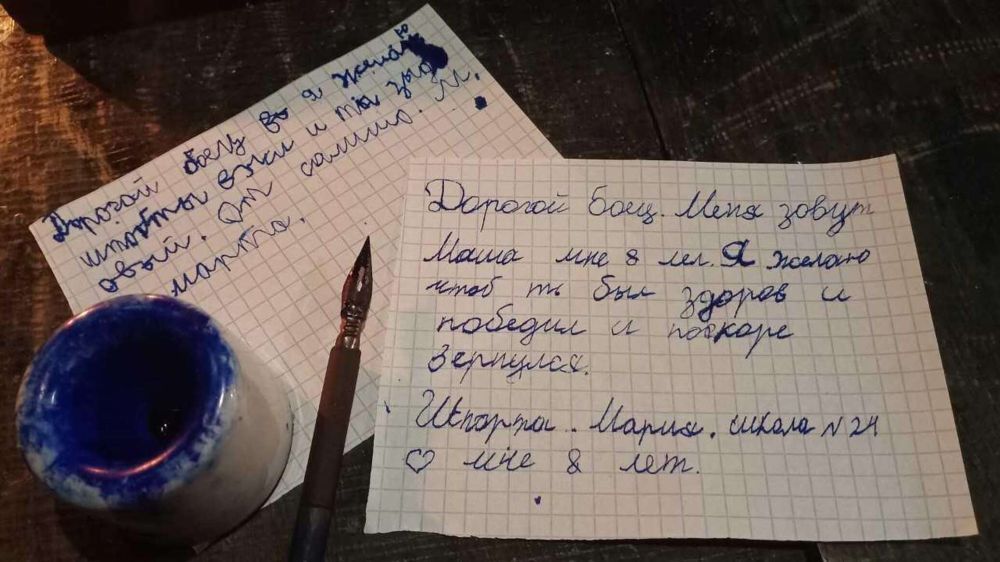 Дорогой боец я желаю
штобты и ты
овый. От М.
марта.
Дорогой боец. Меня зовут
Маша мне 8 лет. Я желаю
чтоб ты был здоров и
победил и поскаре
вернулся.
Мария. школа N 24
♡ мне 8 лет.